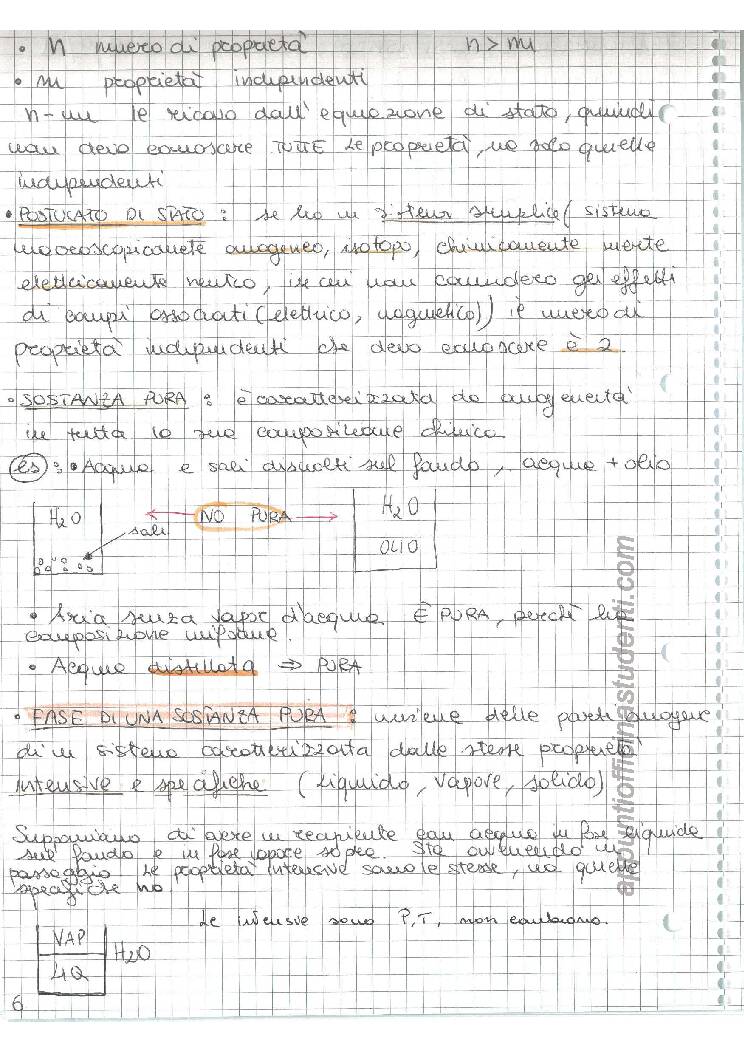 • n numero di proprietà n > m
• m proprietà indipendenti
n-m le ricavo dall'equazione di stato, quindi
non devo conoscere TUTTE le proprietà, ma solo quelle
indipendenti
• POSTULATO DI STATO : se ho un sistema semplice ( sistema
macroscopicamente omogeneo, isotopo, chimicamente inerte
elettricamente neutro, in cui non considero gli effetti
di campi associati (elettrico, magnetico)) il numero di
proprietà indipendenti che devo conoscere è 2.
• SOSTANZA PURA : è caratterizzata da omogeneità
in tutta la sua composizione chimica.
es : • Acqua e sali disciolti sul fondo, acqua + olio
H2O NO PURA H2O
sali
OLIO
• Aria senza vapor d'acqua È PURA, perchè ha
composizione uniforme.
• Acqua distillata ⇒ PURA
• FASE DI UNA SOSTANZA PURA : insieme delle parti omogenee
di un sistema caratterizzata dalle stesse proprietà
intensive e specifiche ( liquido, vapore, solido)
Supponiamo di avere un recipiente con acqua in fase liquida
sul fondo e in fase vapore sopra. Sta avvenendo un
passaggio. Le proprietà intensive sono le stesse, ma quelle
specifiche no.
Le intensive sono P,T, non cambiano.
VAP
H2O
LIQ
6
appuntiofficinastudenti.com